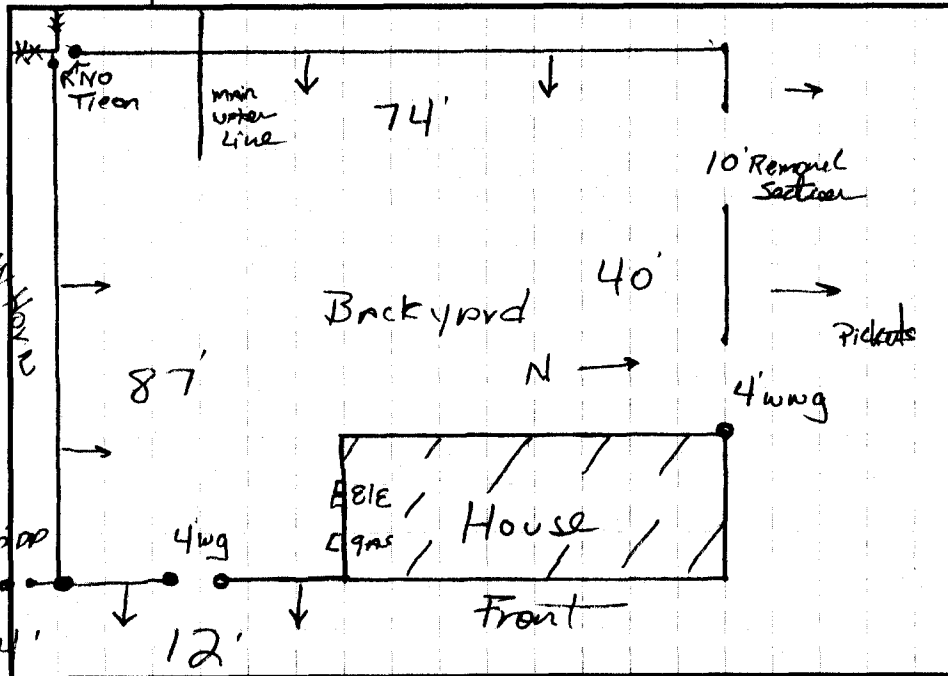 NO
main
water
Line
74'
10' Removel
Section
40'
Backyard
Pickets
N
87'
4' wwg
ElE
gas
House
4'wg
DP
Front
12'
4'